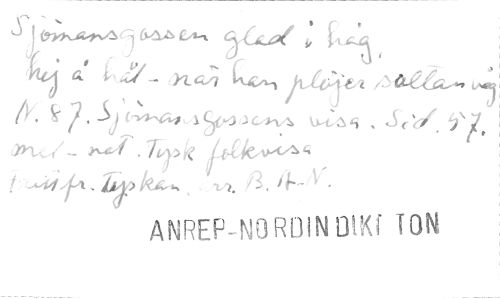 Sjömansgossen glad i håg,
hej å hå! - när han plöjer saltan våg
N. 87. Sjömansgossens visa. Sid. 57.
mel - not. Tysk folkvisa
fr. Tyskan, arr. B. A-N.
ANREP-NORDIN DIKT TON